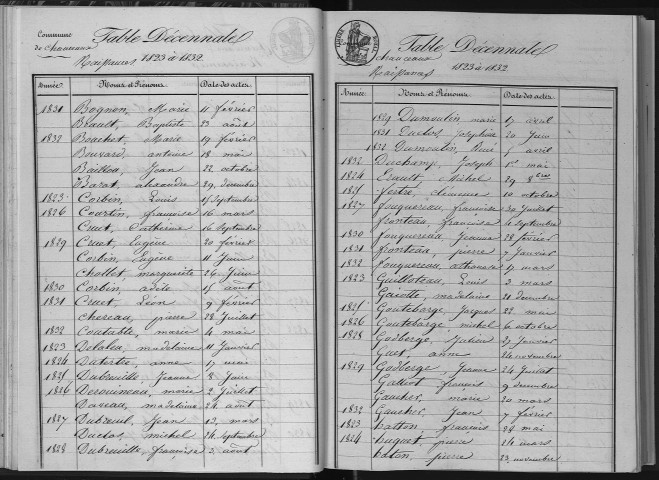 Commune
de Chanceaux
Table Décennale
Naissances 1823 à 1832
Année Noms et Prénoms Date des actes
1831 Bognon, Marie 11 février
Brault, Baptiste 23 août
1832 Bouchet, Marie 19 février
Bouvard, antoine 18 mai
Baillou, Jean 22 octobre
Barat, alexandre 29 décembre
1823 Corbin, Louis 15 Septembre
1826 Courtin, françoise 16 mars
Cruet, Catherine 16 Septembre
1829 Cruet, Eugène 20 février
Corbin, Eugène 11 Juin
Chollet, marguerite 26 Juin
1830 Corbin, adèle 15 août
1831 Cruet, Léon 9 février
Chereau, pierre 28 Juillet
1832 Coutable, marie 4 mai
1823 Delaleu, madelaine 11 Janvier
1824 Dutertre, anne mai
1825 Dubreuille, Jeanne 8 Juin
1826 Derouineau, marie 2 Juillet
Daveau, madelaine 24 août
1827 Dubreuil, Jean 13 mars
Duclos, michel 24 Septembre
1828 Dubreuille, françoise 3 août
Commune
Chanceaux
Table Décennale
Naissances 1823 à 1832
Année Noms et Prénoms Date des actes
1829 Dumoulin, marie 17 avril
1831 Duclos, Joséphine 20 Juin
1832 Dumoulin, René 5 avril
1832 Duchamp, Joseph 1er mai
1824 Esault, Michel 29 8bre
1825 fertre, 10 octobre
1827 fouquereau, françoise 30 Juillet
fronteau, françoise 4 Septembre
1830 fouquereau, Jeanne 28 février
1831 fronteau, pierre 7 Janvier
1832 fouquereau, athanase 17 mars
1823 Guilloteau, Louis 2 mars
madelaine 21 décembre
1825 Goutebarge, Jacques 22 mai
1826 Goutebarge, michel 6 octobre
1828 Godberge, Julien 23 Janvier
Guet, anne 24 novembre
1829 Godberge, Jeanne 24 Juillet
Galliot, françois 9 décembre
Gaucher, marie 20 mars
1832 Gaucher, Jean 7 février
1823 hatton, françois 29 mai
1824 huguet, pierre 24 mars
hatton, pierre 23 novembre